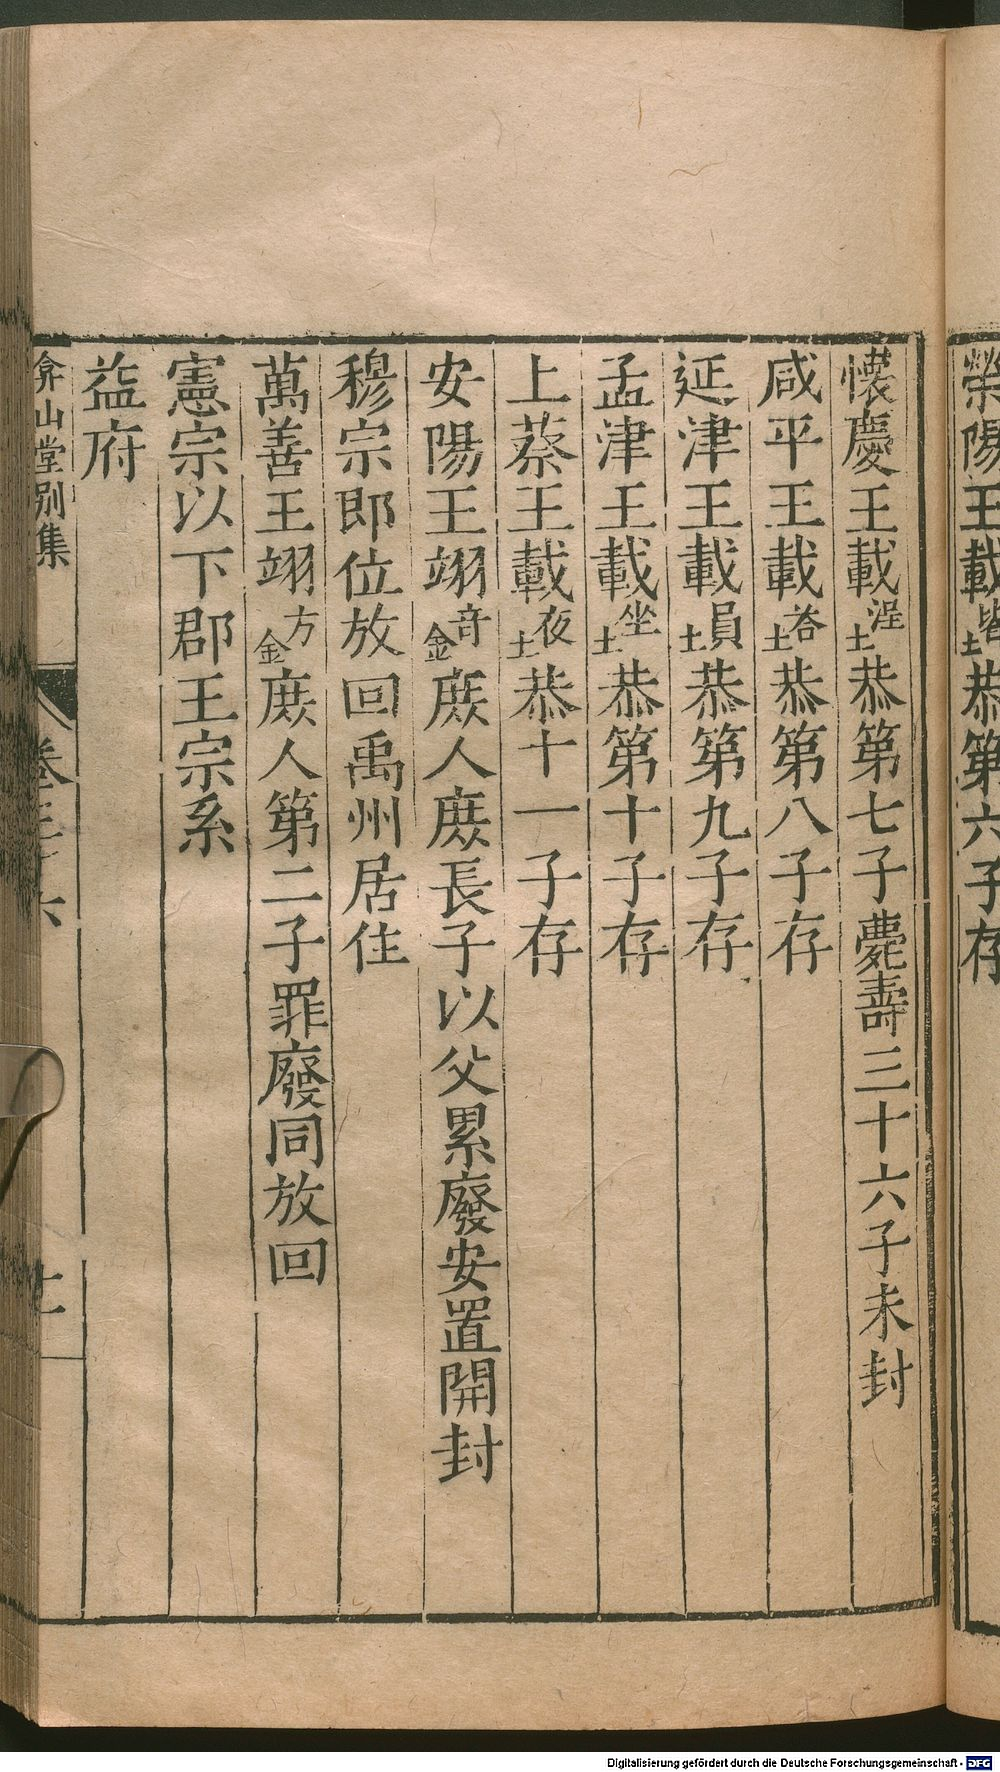 滎陽王載堦恭第六子存
懷慶王載浧土恭第七子薨壽三十六子未封
咸平王載荅土恭第八子存
延津王載員土恭第九子存
孟津王載坐土恭第十子存
上蔡王載夜土恭十一子存
安陽王翊音金庶人庶長子以父累廢安置開封
穆宗即位放回禹州居住
萬善王翊方金庶人第二子罪廢同放回
憲宗以下郡王宗系
益府
弇山堂別集
卷三十六
十一
Digitalisierung gefördert durch die Deutsche Forschungsgemeinschaft - DFG